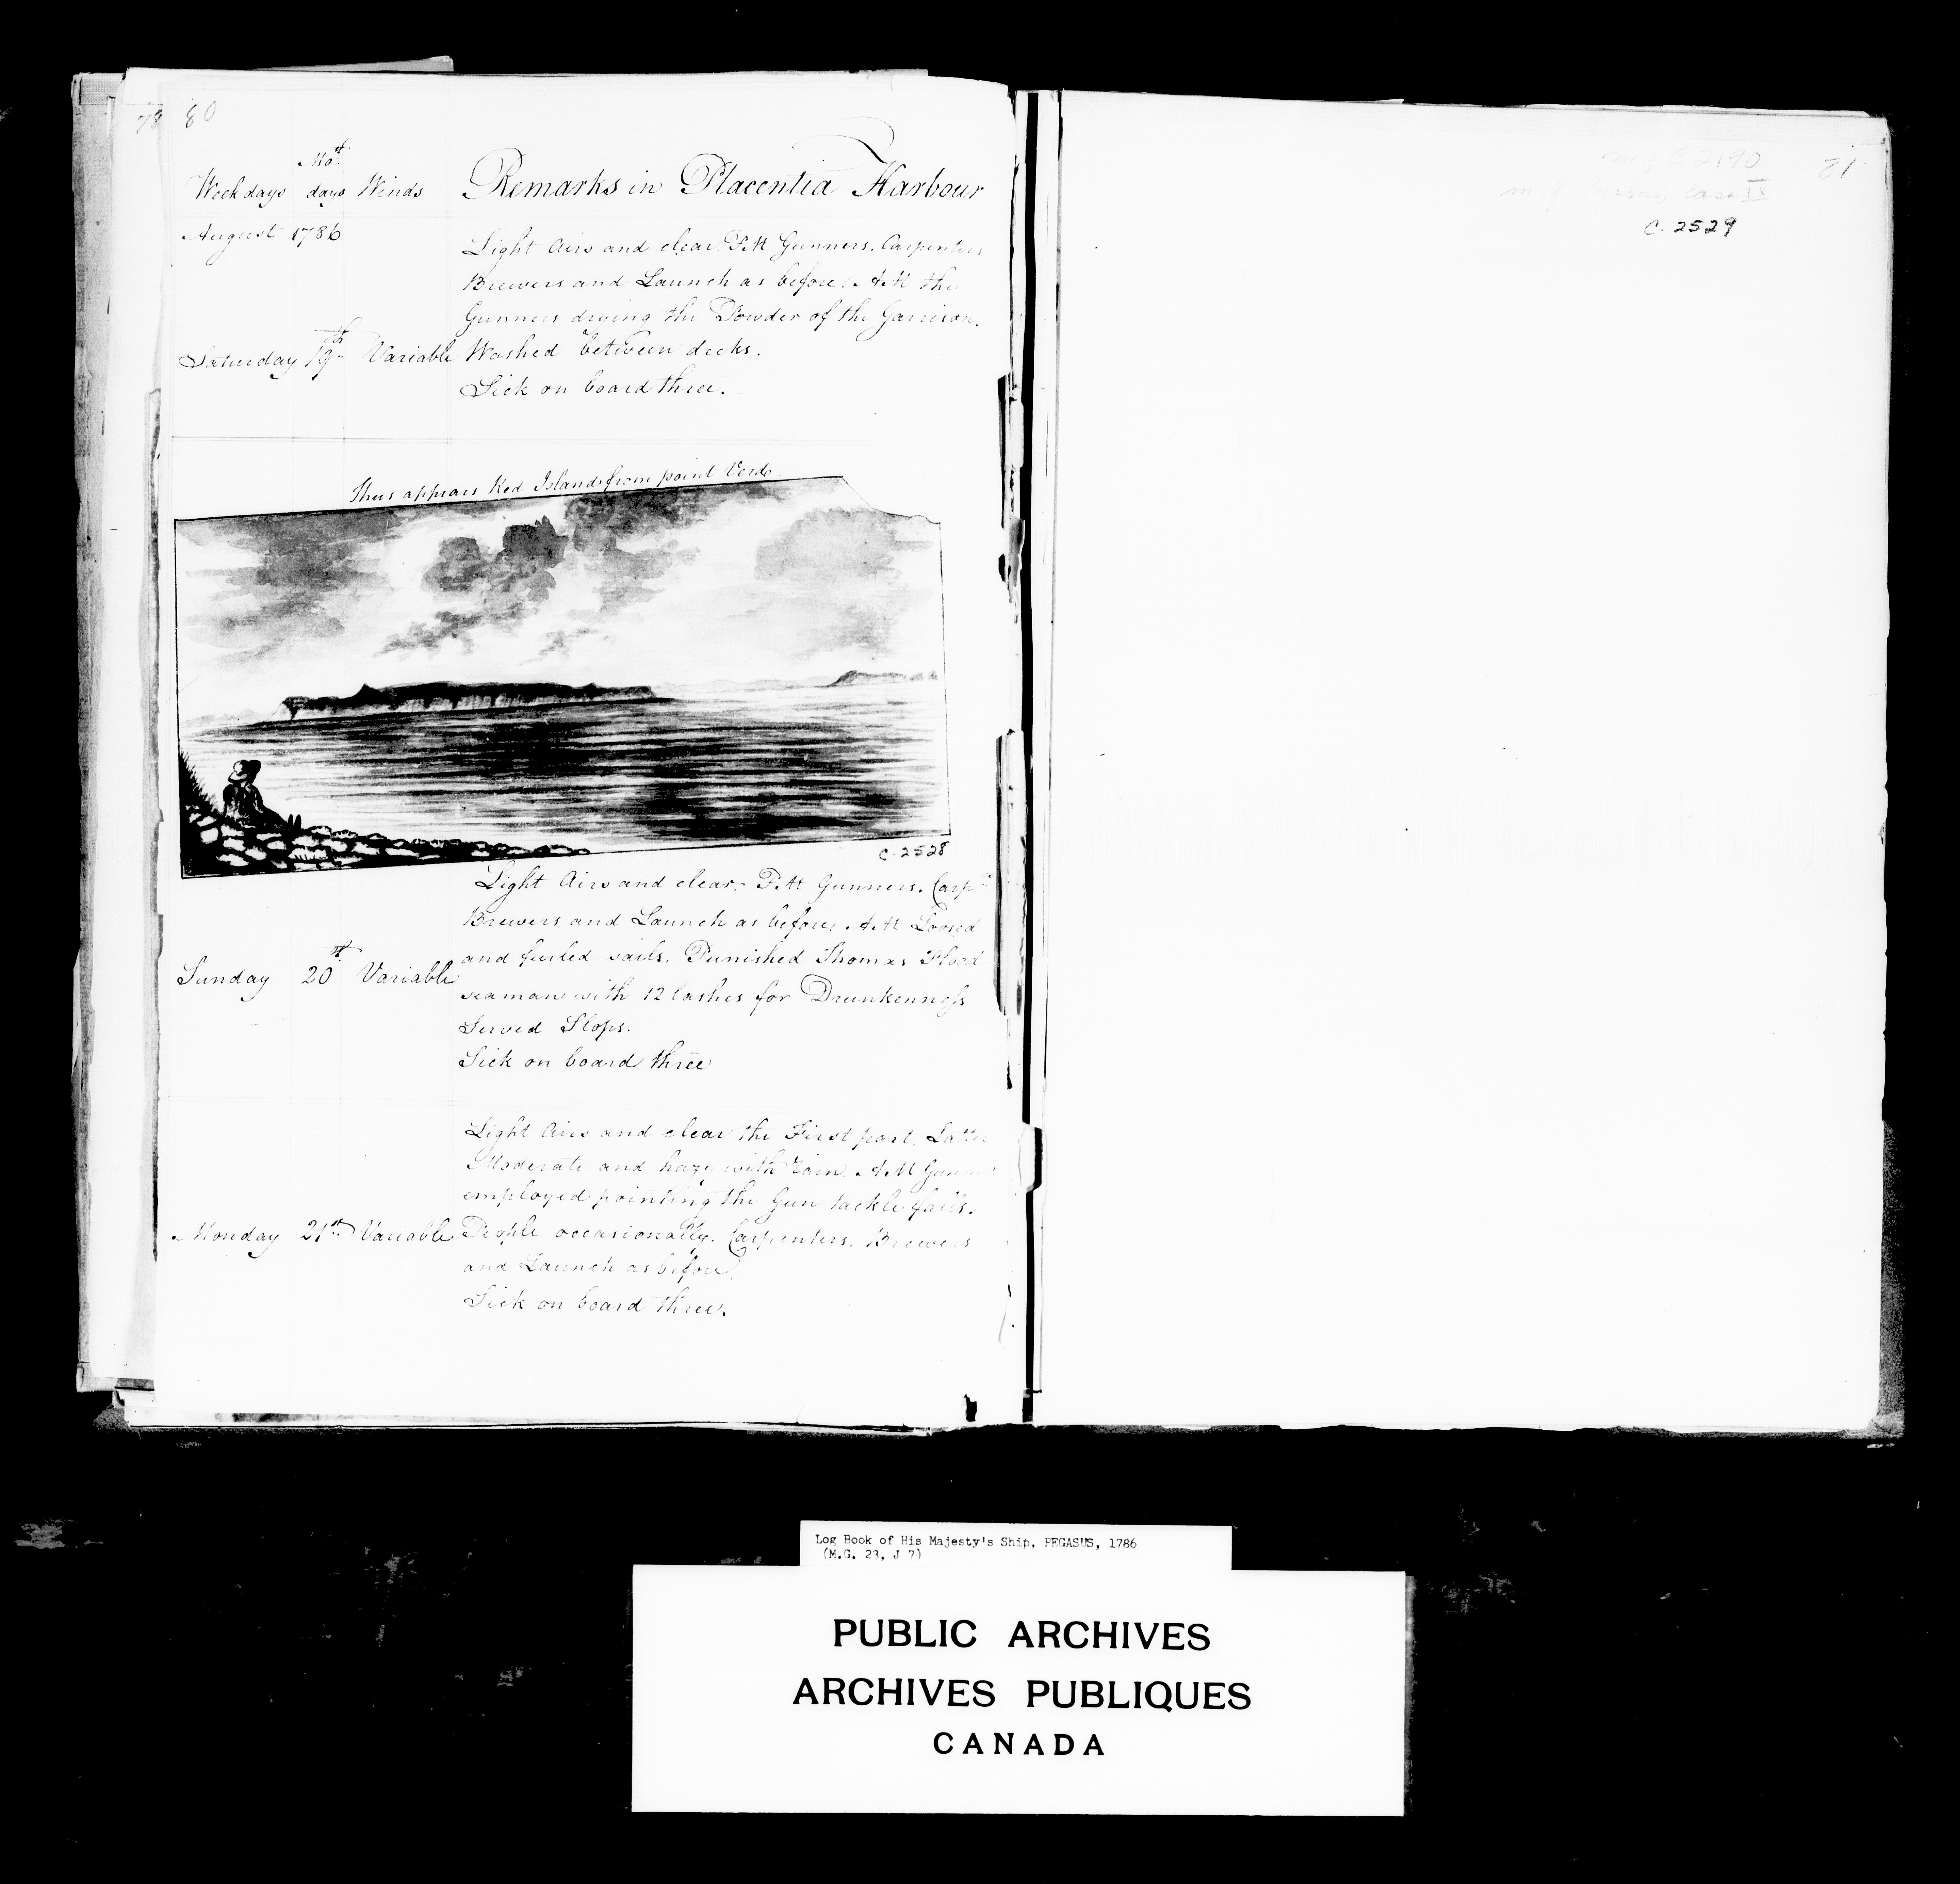 78 80
Week days Mo.th days Winds Remarks in Placentia Harbour
August 1786
Light Airs and clear. P.M Gunners. Carpenters
Brewers and Launch as before. A.M the
Gunners drying the Powder of the Garrison.
Saturday 19th Variable Washed between decks.
Sick on board three.
Thus appears Red Island from point Verde
C-2528
Light Airs and clear. P.M Gunners. Carprs
Brewers and Launch as before. A.M Loosed
and furled sails. Punished Thomas Flood
Sunday 20th Variable
seaman with 12 lashes for Drunkenness
Served Slops.
Sick on board three
Light Airs and clear the First part. Latter
Moderate and hazy with rain. A.M Gunners
employed pointing the Gun tackle falls.
Monday 21st Variable People occasionally. Carpenters. Brewers
and Launch as before.
Sick on board three.
C 2190
C-2529
81
Log Book of His Majesty's Ship, PEGASUS, 1786
(M.G. 23, J 7)
PUBLIC ARCHIVES
ARCHIVES PUBLIQUES
CANADA